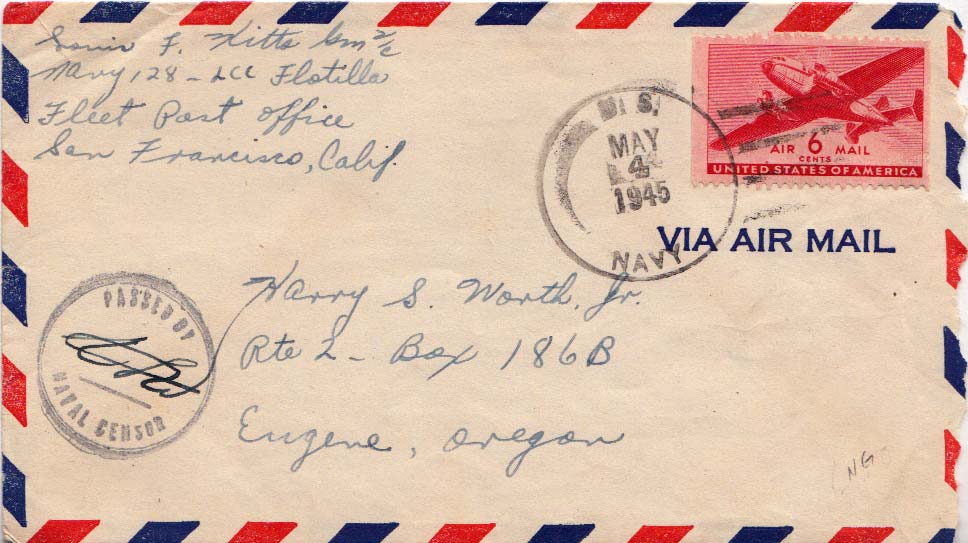 Louis F. Kitts Gm 2/c
Navy 128 - LCC Flotilla
Fleet Post Office
San Francisco, Calif.
U. S.
MAY
4
1945
NAVY
AIR 6 MAIL
CENTS
UNITED STATES OF AMERICA
VIA AIR MAIL
PASSED BY
NAVAL CENSOR
Harry S. Worth, Jr.
Rte 2 - Box 186B
Eugene, Oregon
NG